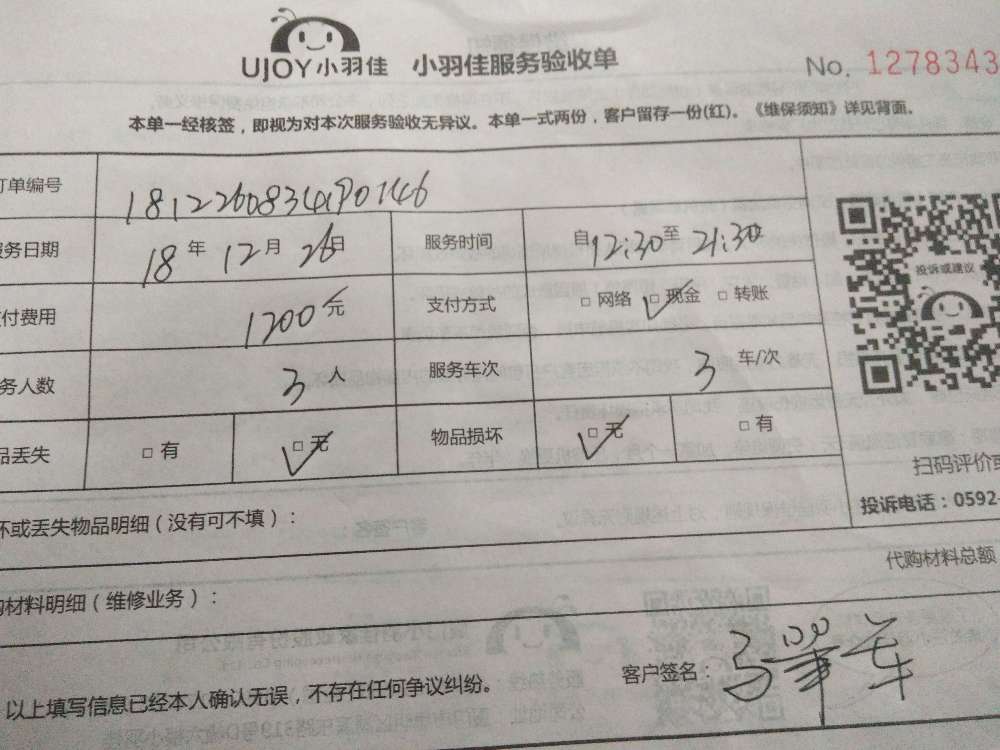 UJOY小羽佳 小羽佳服务验收单 No. 1278343
本单一经核签，即视为对本次服务验收无异议。本单一式两份，客户留存一份(红)。《维保须知》详见背面。
订单编号
服务日期 18 年 12 月 26 日 服务时间 自 12:30 至 21:30
支付费用 1200 元 支付方式 □ 网络 □ 现金 □ 转账
投诉或建议
务人数 3 服务车次 3 车/次
品丢失 □ 有 □ 无 物品损坏 □ 无 □ 有
扫码评价或
坏或丢失物品明细（没有可不填）： 投诉电话：0592-
代购材料总额
购材料明细（维修业务）：
以上填写信息已经本人确认无误，不存在任何争议纠纷。 客户签名：